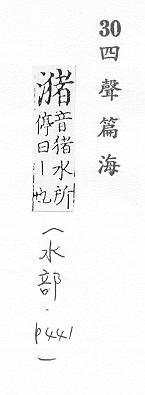 30四聲篇海
瀦音猪水所
停曰丨也
（水部．P441）